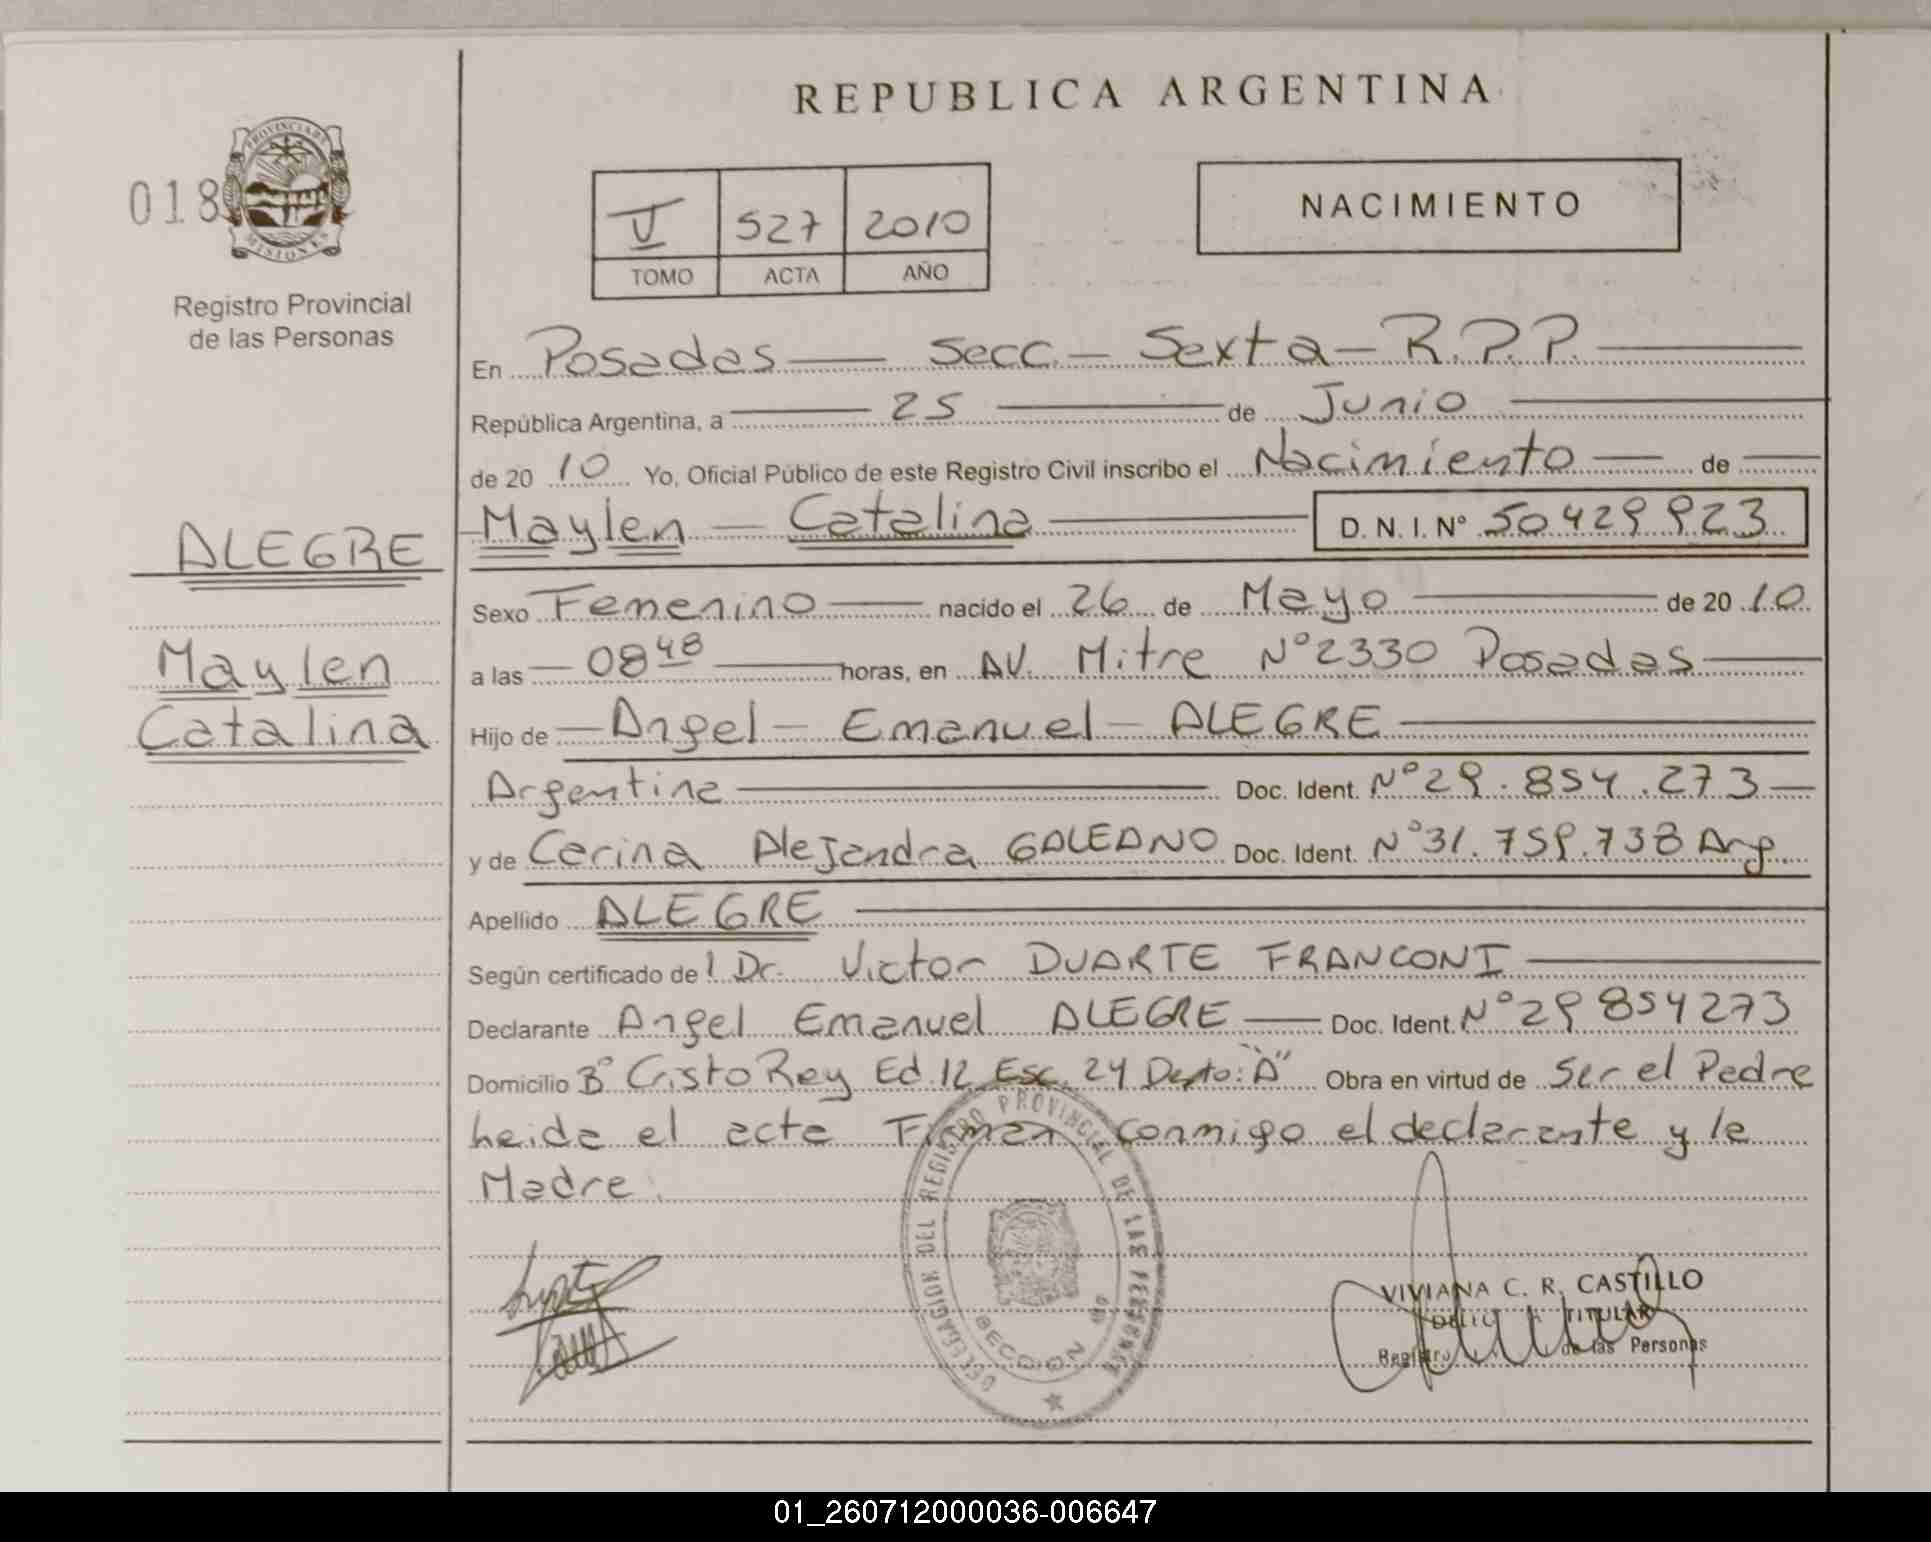 REPUBLICA ARGENTINA
018
PROVINCIA DE
MISIONES
Registro Provincial
de las Personas
V 527 2010
TOMO ACTA AÑO
NACIMIENTO
En Posadas — Secc. — Sexta — R.P.P. —
República Argentina, a — 25 — de Junio —
de 2010 Yo, Oficial Público de este Registro Civil inscribo el Nacimiento — de —
Maylen — Catalina — D. N. I. N° 50429923
ALEGRE
Maylen
Catalina
Sexo Femenino — nacido el 26 de Mayo — de 2010
a las — 08 48 — horas, en AV. Mitre N°2330 Posadas —
Hijo de — Angel — Emanuel — ALEGRE —
Argentina — Doc. Ident. N°29.854.273 —
y de Carina Alejandra GALEANO Doc. Ident. N°31.759.738 Arg.
Apellido ALEGRE —
Según certificado del Dr. Victor DUARTE FRANCONI —
Declarante Angel Emanuel ALEGRE — Doc. Ident. N°29854273
Domicilio B° Cristo Rey Ed.12 Esc. 24 Depto: "A" Obra en virtud de ser el Padre
heida el acta Firman conmigo el declarante y la
Madre.
DELEGACION DEL REGISTRO PROVINCIAL DE LAS PERSONAS
SECCION
VIVIANA C. R. CASTILLO
TITULAR
Registro de las Personas
01_260712000036-006647